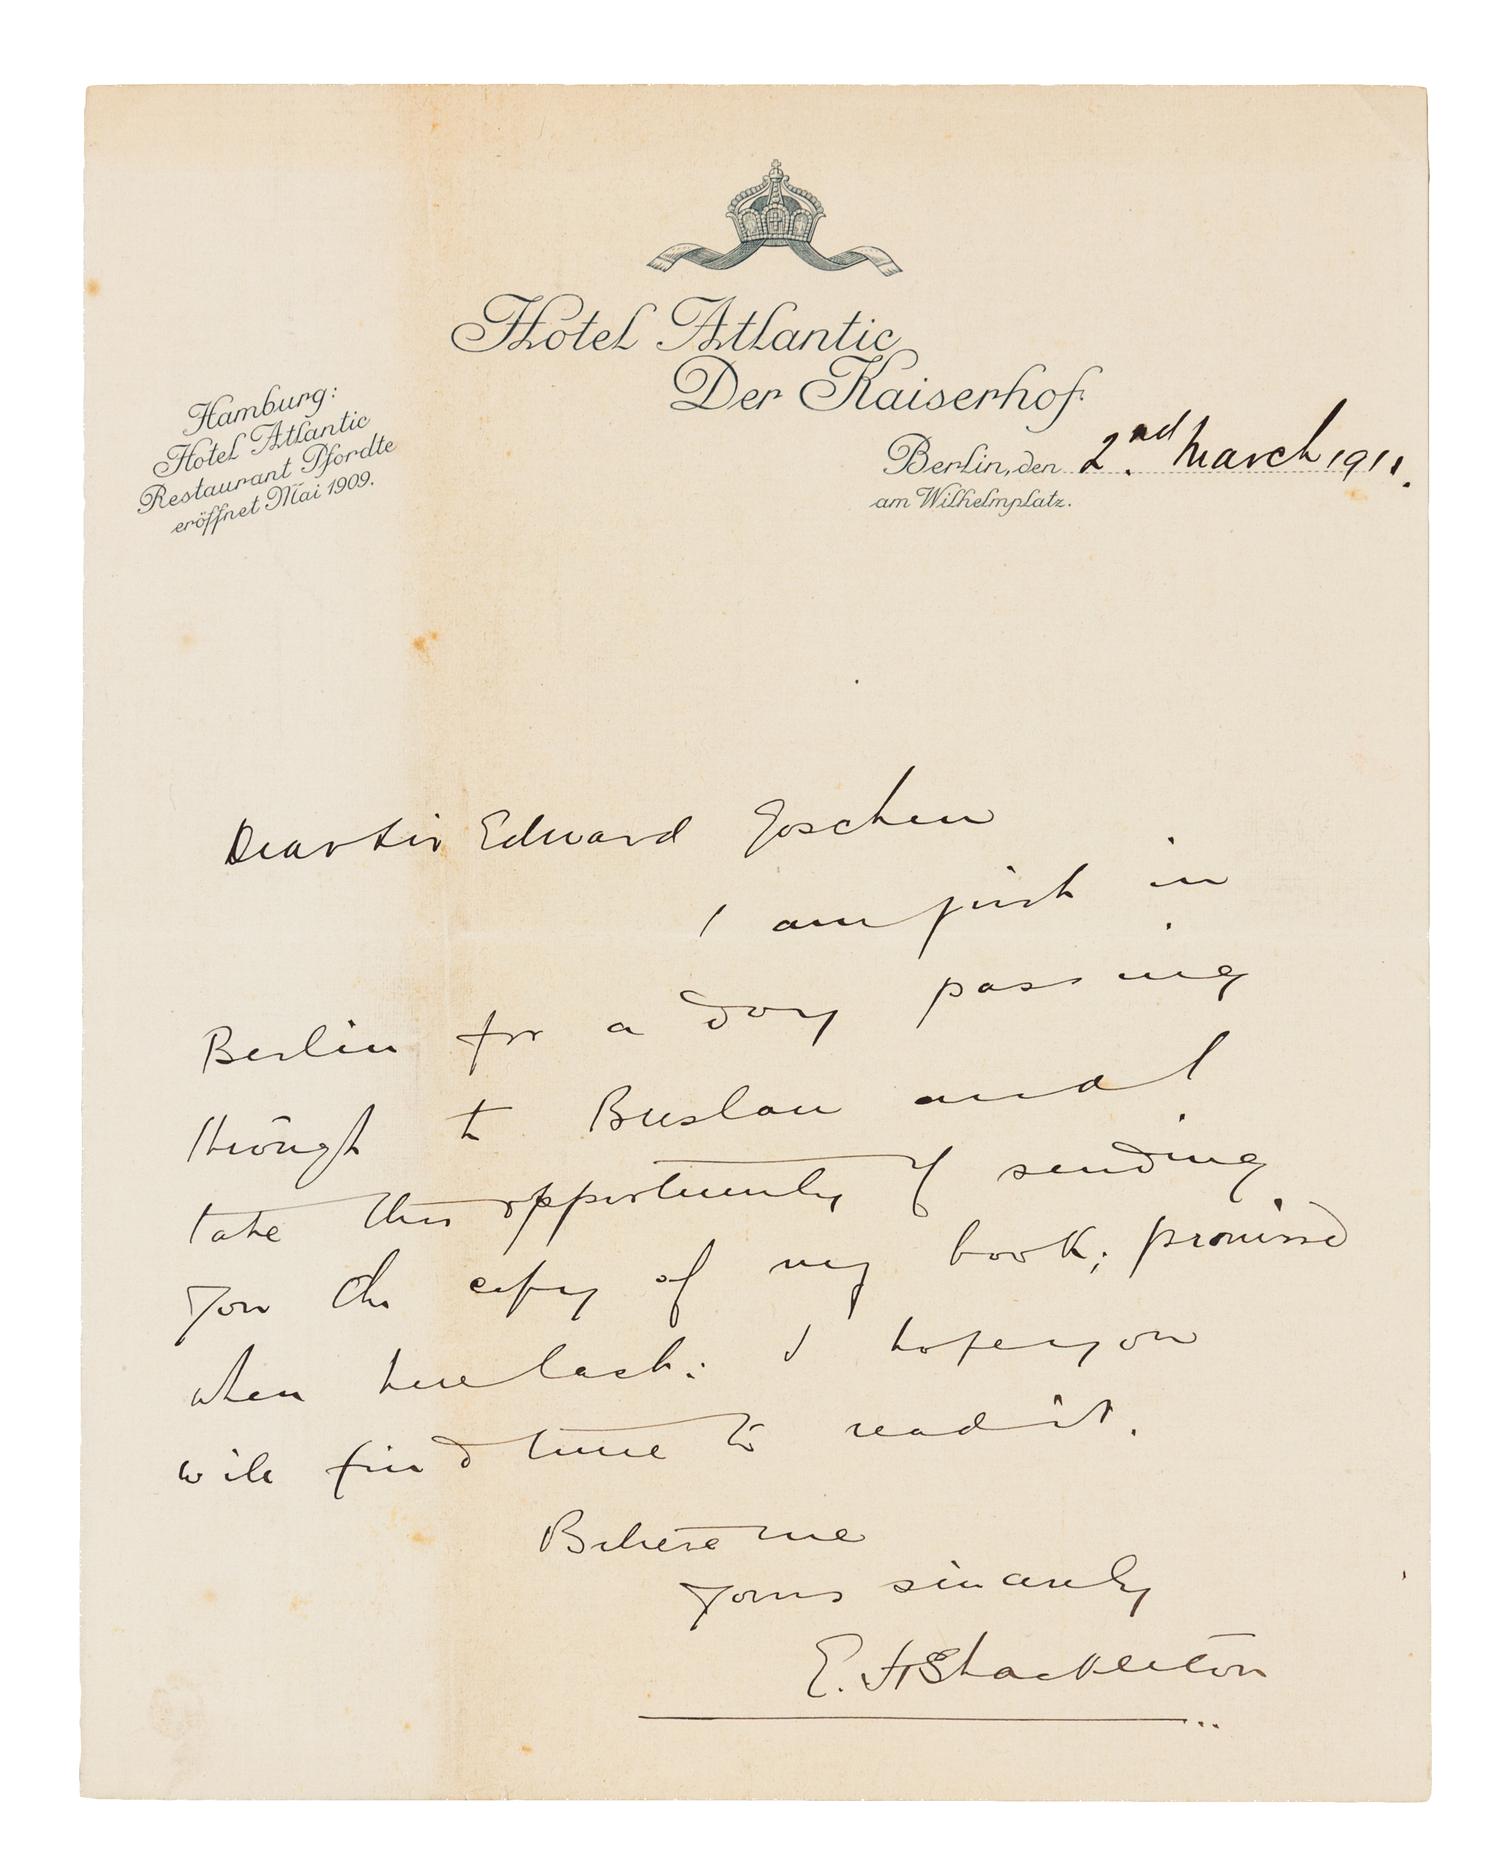 Hotel Atlantic
Der Kaiserhof
Hamburg:
Hotel Atlantic
Restaurant Pfordte
eröffnet Mai 1909.
Berlin, den 2nd March 1911.
am Wilhelmplatz.
Dear Sir Edward Goschen
I am just in
Berlin for a day passing
through to Breslau and
take this opportunity of sending
you the copy of my book; promised
when here last: I hope you
will find time to read it.
Believe me
Yours sincerely
E. H Shackleton